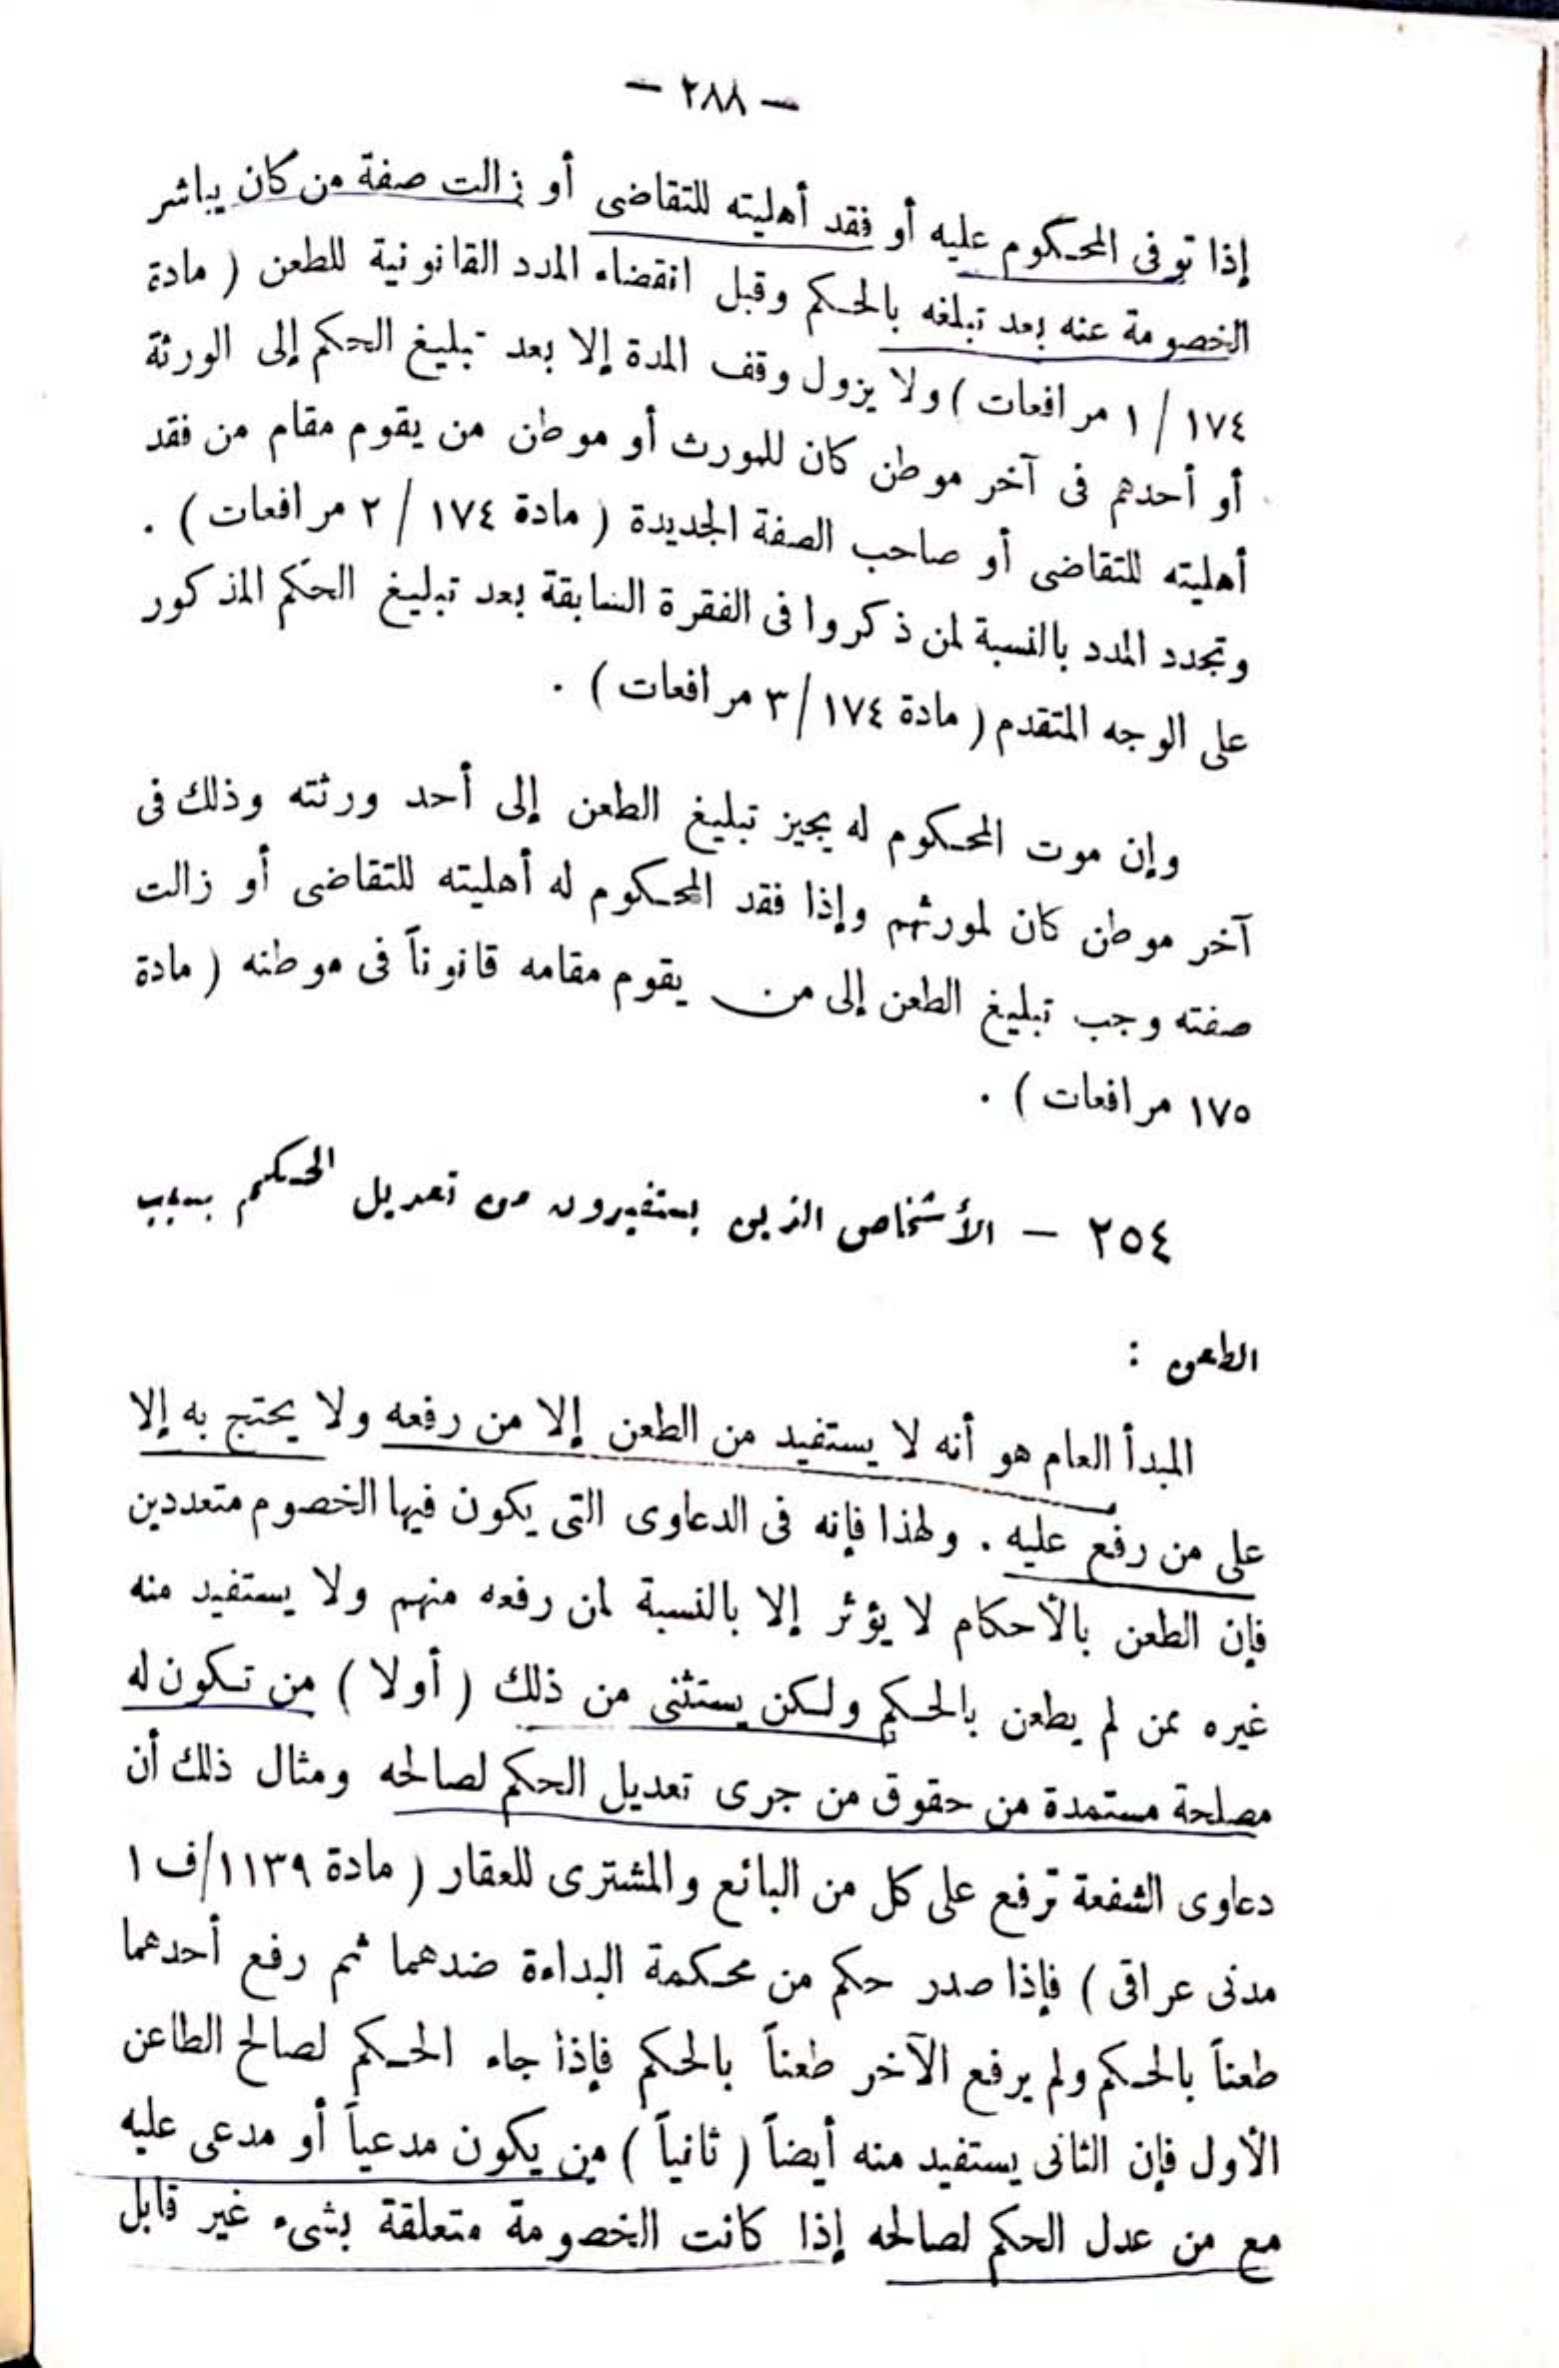 — ٢٨٨ —
إذا توفى المحكوم عليه أو فقد أهليته للتقاضى أو زالت صفة من كان يباشر
الخصومة عنه بعد تبلغه بالحكم وقبل انقضاء المدد القانونية للطعن ( مادة
١٧٤ / ١ مرافعات ) ولا يزول وقف المدة إلا بعد تبليغ الحكم إلى الورثة
أو أحدهم فى آخر موطن كان للمورث أو موطن من يقوم مقام من فقد
أهليته للتقاضى أو صاحب الصفة الجديدة ( مادة ١٧٤ / ٢ مرافعات ) .
وتجدد المدد بالنسبة لمن ذكروا فى الفقرة السابقة بعد تبليغ الحكم المذكور
على الوجه المتقدم ( مادة ١٧٤ /٣ مرافعات ) .
وإن موت المحكوم له يجيز تبليغ الطعن إلى أحد ورثته وذلك فى
آخر موطن كان لمورثهم وإذا فقد المحكوم له أهليته للتقاضى أو زالت
صفته وجب تبليغ الطعن إلى من يقوم مقامه قانوناً فى موطنه ( مادة
١٧٥ مرافعات ) .
٢٥٤ — الأشخاص الذين يستفيدون من تعديل الحكم بسبب
الطعن :
المبدأ العام هو أنه لا يستفيد من الطعن إلا من رفعه ولا يحتج به إلا
على من رفع عليه . ولهذا فإنه فى الدعاوى التى يكون فيها الخصوم متعددين
فإن الطعن بالأحكام لا يؤثر إلا بالنسبة لمن رفعه منهم ولا يستفيد منه
غيره ممن لم يطعن بالحكم ولكن يستثنى من ذلك ( أولا ) من تكون له
مصلحة مستمدة من حقوق من جرى تعديل الحكم لصالحه ومثال ذلك أن
دعاوى الشفعة ترفع على كل من البائع والمشترى للعقار ( مادة ١١٣٩/ف ١
مدنى عراقى ) فإذا صدر حكم من محكمة البداءة ضدهما ثم رفع أحدهما
طعناً بالحكم ولم يرفع الآخر طعناً بالحكم فإذا جاء الحكم لصالح الطاعن
الأول فإن الثانى يستفيد منه أيضاً ( ثانياً ) من يكون مدعياً أو مدعى عليه
مع من عدل الحكم لصالحه إذا كانت الخصومة متعلقة بشىء غير قابل